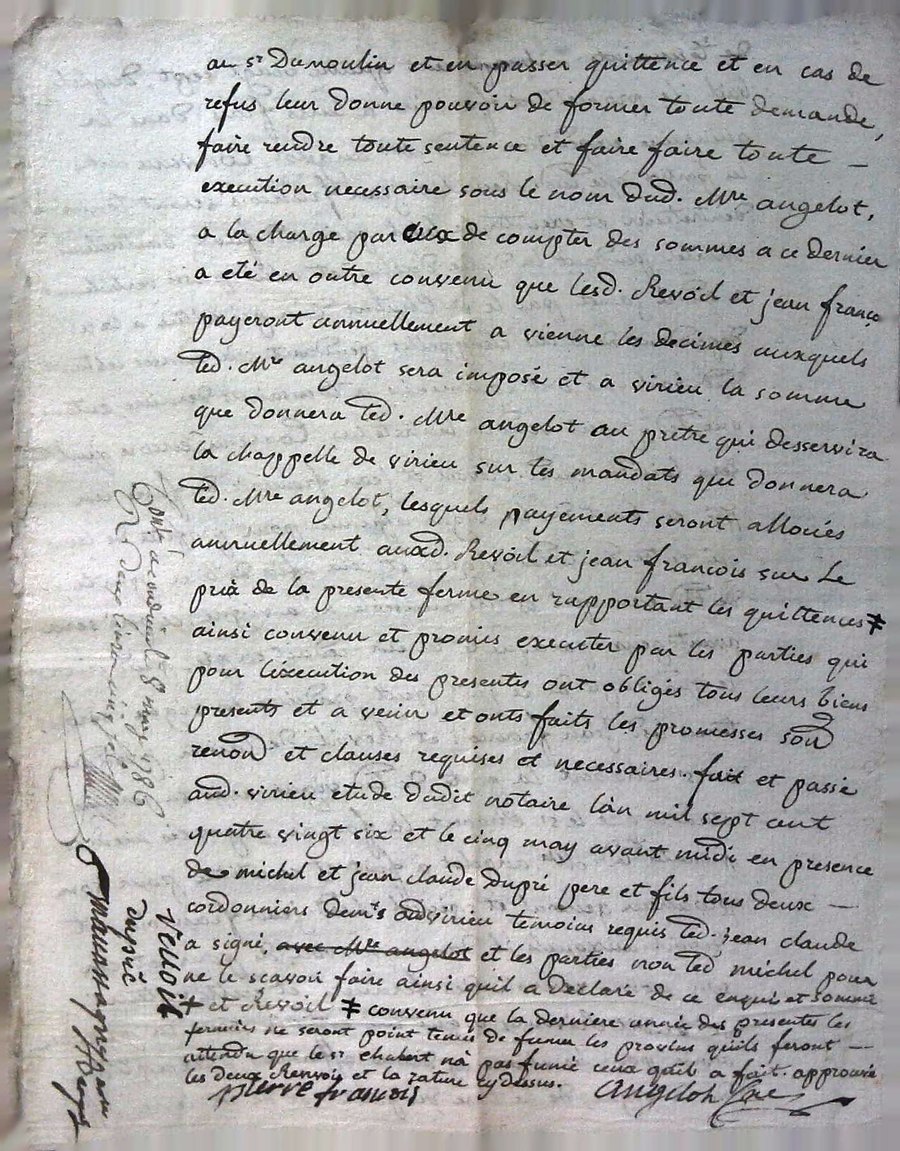 au sr Dumoulin et en passer quittence et en cas de
refus leur donne pouvoir de former toute demande,
faire rendre toute sentence et faire faire toute
execution necessaire sous le nom dud. Mre angelot,
a la charge par eux de compter des sommes a ce dernier
a eté en outre convenu que lesd. Revoil et jean franço
payeront annuellement a vienne les decimes auxquels
led. Mre angelot sera imposé et a virieu la somme
que donnera led. Mre angelot au pretre qui desservira
la chappelle de virieu sur les mandats que donnera
led. Mre angelot, lesquels payements seront alloués
annuellement auxd. Revoil et jean francois sur le
prix de la presente ferme en rapportant les quittences ‡
ainsi convenu et promis executer par les parties qui
pour l'éxecution des presentes ont obligés tous leurs biens
presents et a venir et onts faits les promesses soud
renond et clauses requises et necessaires. fait et passé
aud. virieu etude dudit notaire l'an mil sept cent
quatre vingt six et le cinq may avant midi en presence
de michel et jean claude dupré pere et fils tous deux —
cordonniers demts audvirieu temoins requis led. jean claude
a signé, avec Mre angelot et les parties non led michel pour
ne le scavoir faire ainsi qu'il a declaré de ce enqui et sommé
‡ et Revoil ‡ convenu que la derniere année des presentes les
fermiers ne seront point tenus de fumer les proylus qu'ils feront —
attendu que le sr chabert n'a pas fumé ceux qu'il a fait. approuvé
les deux Renvois et la rature cy dessus.
pierre francois angeloh
Revoil
dupré
Contlé a virieu le 8 may 1786